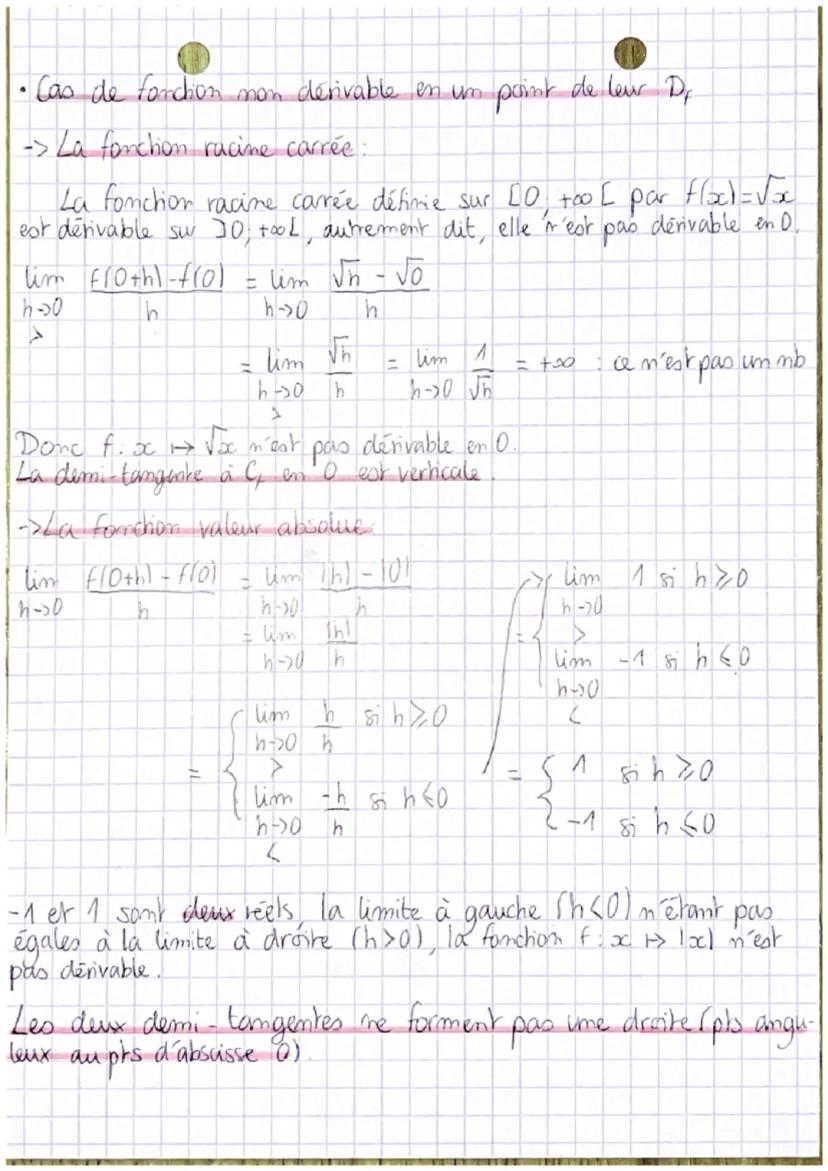 • Cas de fonction non dérivable en un point de leur Df
-> La fonction racine carrée :
La fonction racine carrée définie sur [0, +∞[ par f(x)=√x
est dérivable sur ]0; +∞[, autrement dit, elle n'est pas dérivable en 0.
lim f(0+h)-f(0) = lim √h - √0
h->0 h h->0 h
>
= lim √h = lim 1 = +∞ : ce n'est pas un nb
h->0 h h->0 √h
>
Donc f: x ↦ √x n'est pas dérivable en 0.
La demi-tangente à Cf en 0 est verticale.
->La fonction valeur absolue:
lim f(0+h) - f(0) = lim |h| - |0|
h->0 h h->0 h
= lim |h|
h->0 h
= { lim h si h⩾0
h->0 h
>
lim -h si h⩽0
h->0 h
<
= { lim 1 si h⩾0
h->0
>
lim -1 si h⩽0
h->0
<
= { 1 si h⩾0
-1 si h⩽0
-1 et 1 sont deux réels, la limite à gauche (h<0) n'étant pas
égales à la limite à droite (h>0), la fonction f: x ↦ |x| n'est
pas dérivable.
Les deux demi-tangentes ne forment pas une droite (pts angu-
leux au pts d'abscisse 0).